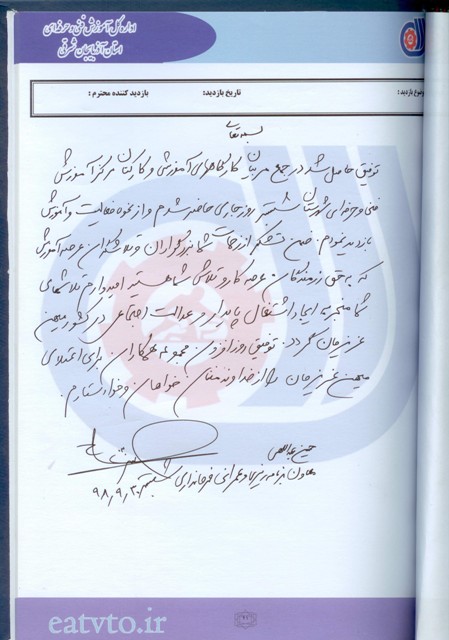 اداره کل آموزش فنی و حرفه ای
استان آذربایجان شرقی
موضوع بازدید :
تاریخ بازدید:
بازدید کننده محترم :
بسمه تعالی
توفیق حاصل شد در جمع مربیان کارگاههای آموزشی و کارکنان مرکز آموزش
فنی و حرفه ای شهرستان شبستر روز جاری حاضر شدم و از نحوه فعالیت و آموزش
بازدید نمودم. ضمن تشکر از زحمات شما بزرگواران و تلاشگران عرصه آموزش
که به حق رزمندگان عرصه کار و تلاش شما هستید امیدوارم تلاشهای
شما منجر به ایجاد اشتغال پایدار و عدالت اجتماعی در کشور میهن
عزیزمان گردد. توفیق روزافزون مجموعه همکاران برای اعتلای
میهن عزیزمان را از خداوند منان خواهان و خواستارم.
حسین
معاون برنامه ریزی و عمرانی فرمانداری شبستر
۹۸٫۹٫۲۰
eatvto.ir